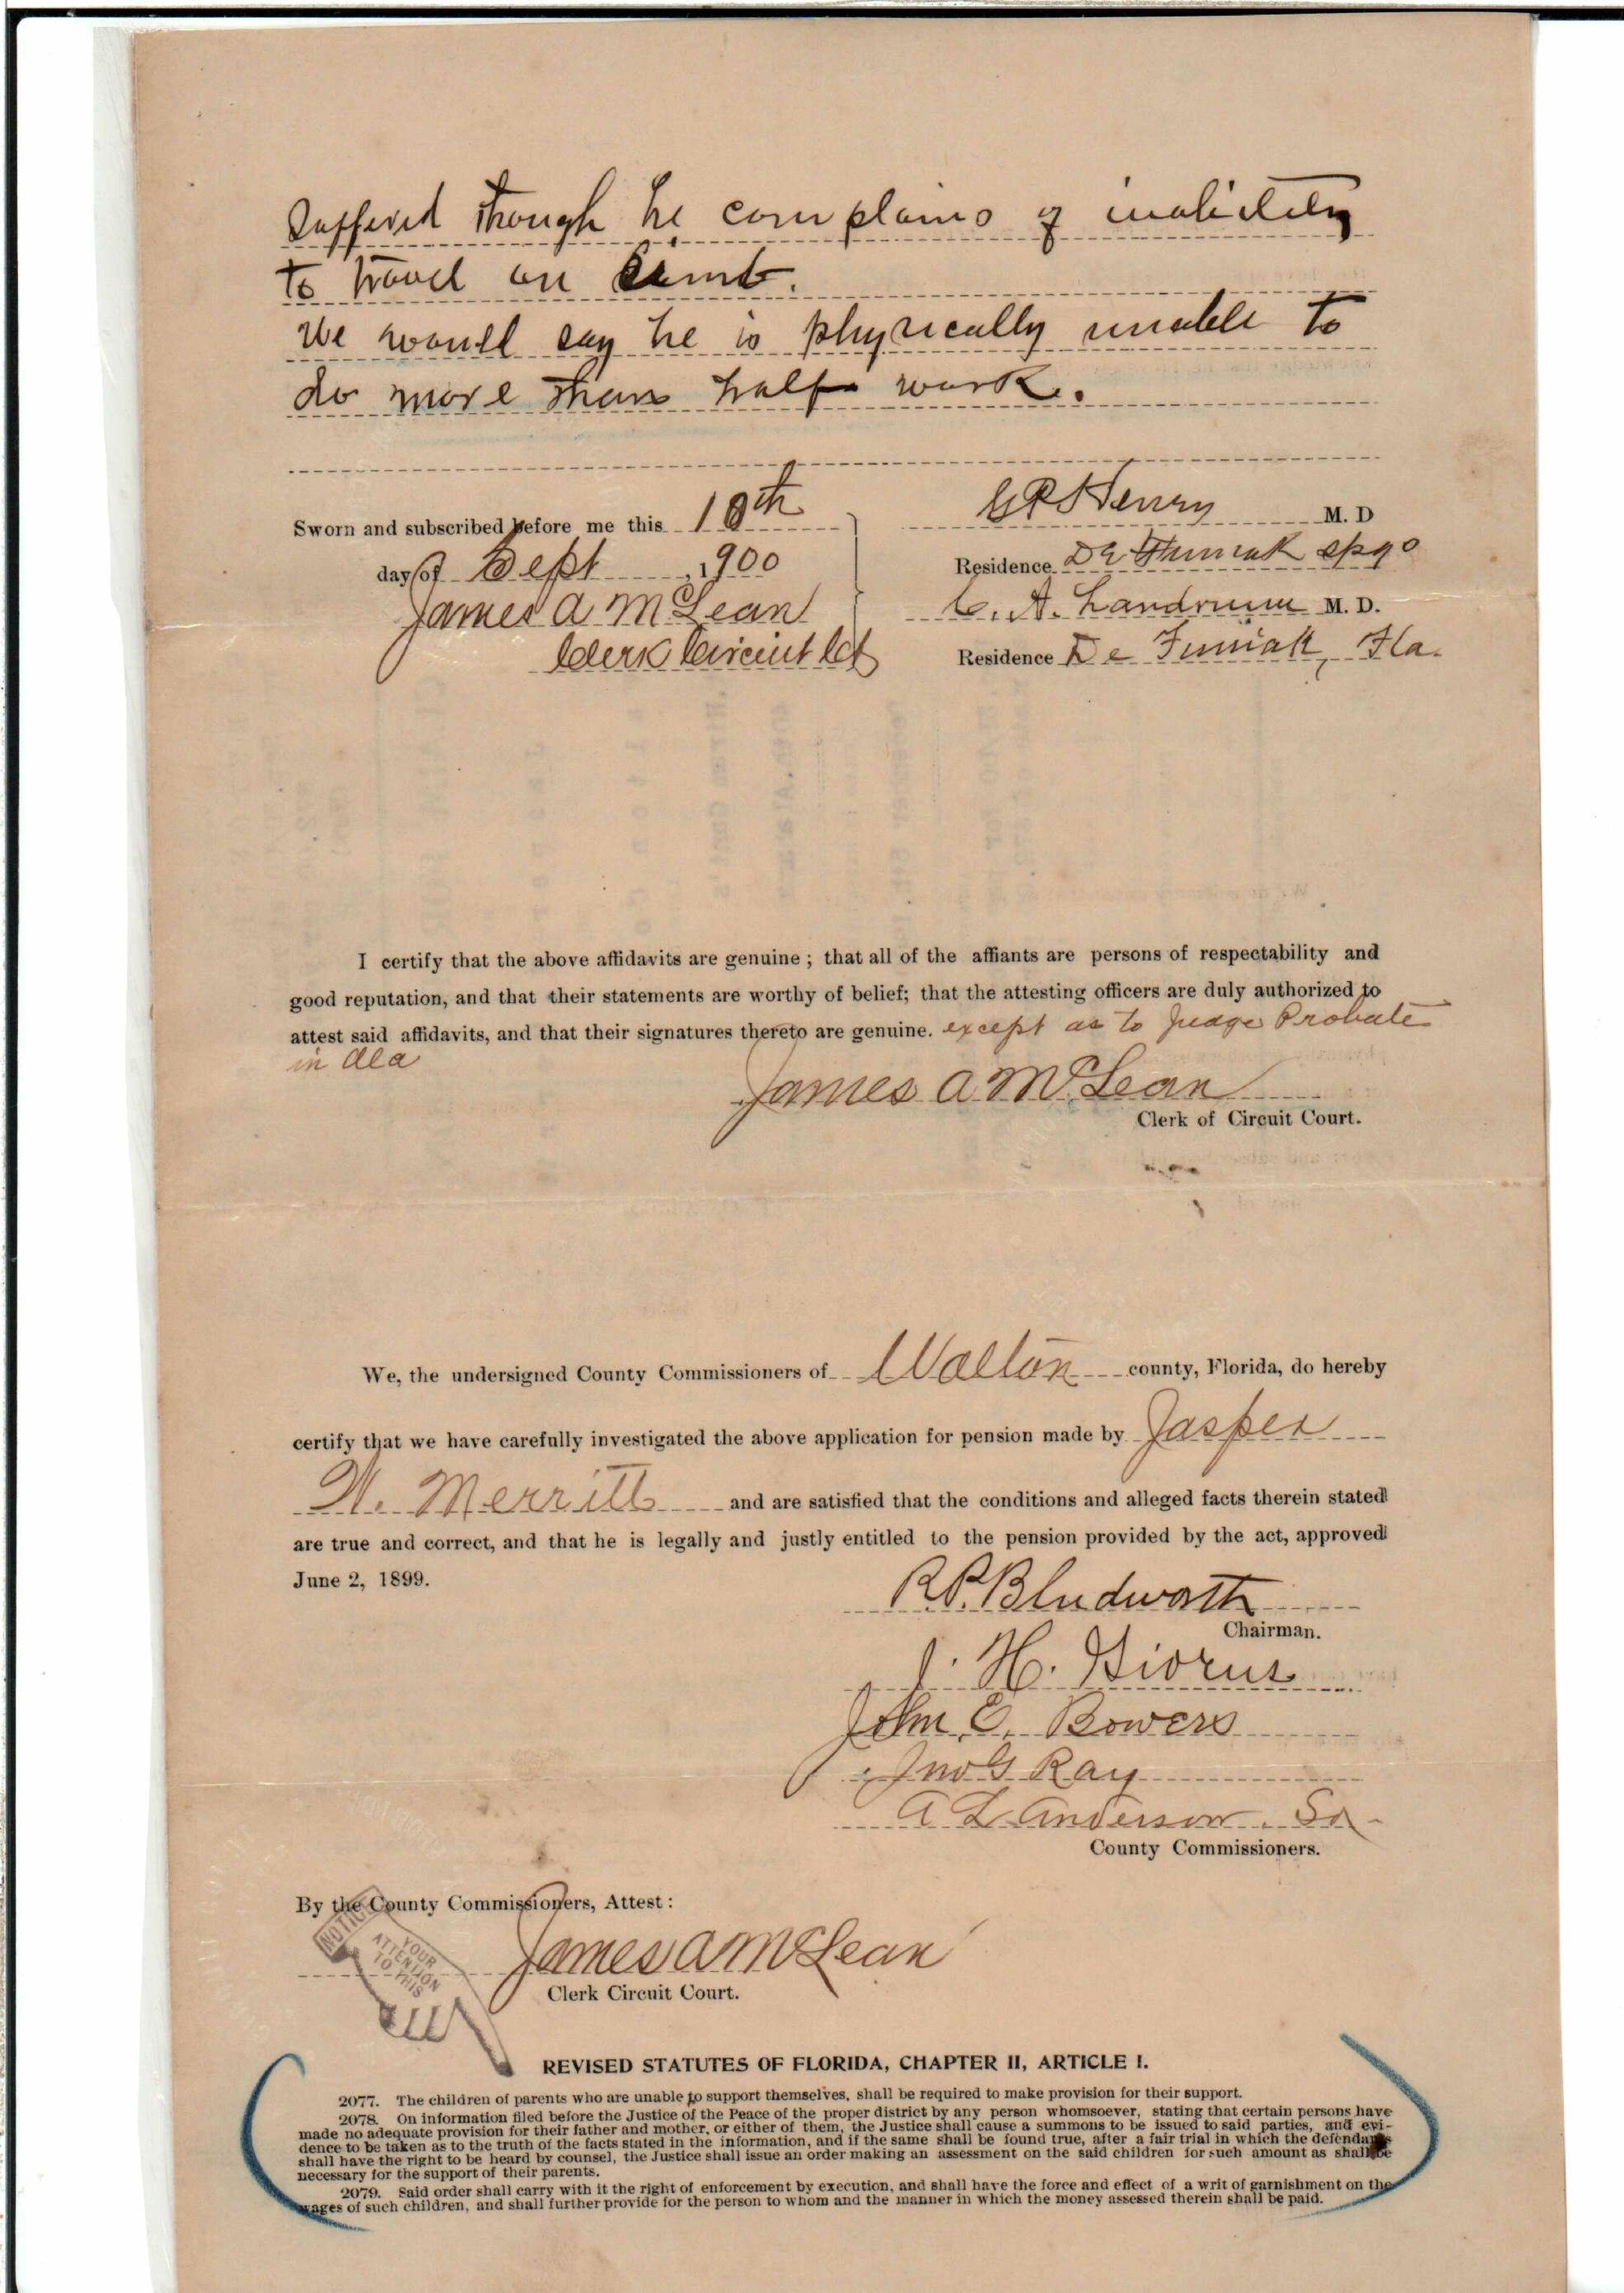 Suffered though he complains of inability
to travel on limb.
We would say he is physically unable to
do more than half work.
Sworn and subscribed before me this 10th
day of Sept, 1900
James A McLean
Clerk Circuit Ct
G P Henry M. D
Residence De Funiak Spgs
C. A. Landrum M. D.
Residence De Funiak, Fla.
I certify that the above affidavits are genuine; that all of the affiants are persons of respectability and
good reputation, and that their statements are worthy of belief; that the attesting officers are duly authorized to
attest said affidavits, and that their signatures thereto are genuine. except as to Judge Probate
in Ala
James A McLean
Clerk of Circuit Court.
We, the undersigned County Commissioners of Walton county, Florida, do hereby
certify that we have carefully investigated the above application for pension made by Jasper
N. Merritt and are satisfied that the conditions and alleged facts therein stated
are true and correct, and that he is legally and justly entitled to the pension provided by the act, approved
June 2, 1899.
R.P. Bludworth
Chairman.
J. H.
John E. Bowers
Jno G Ray
A L Anderson. Sr
County Commissioners.
By the County Commissioners, Attest:
James A McLean
Clerk Circuit Court.
NOTICE
YOUR
ATTENTION
TO THIS
REVISED STATUTES OF FLORIDA, CHAPTER II, ARTICLE I.
2077. The children of parents who are unable to support themselves, shall be required to make provision for their support.
2078. On information filed before the Justice of the Peace of the proper district by any person whomsoever, stating that certain persons have
made no adequate provision for their father and mother, or either of them, the Justice shall cause a summons to be issued to said parties, and evi-
dence to be taken as to the truth of the facts stated in the information, and if the same shall be found true, after a fair trial in which the defendants
shall have the right to be heard by counsel, the Justice shall issue an order making an assessment on the said children for such amount as shall be
necessary for the support of their parents.
2079. Said order shall carry with it the right of enforcement by execution, and shall have the force and effect of a writ of garnishment on the
wages of such children, and shall further provide for the person to whom and the manner in which the money assessed therein shall be paid.